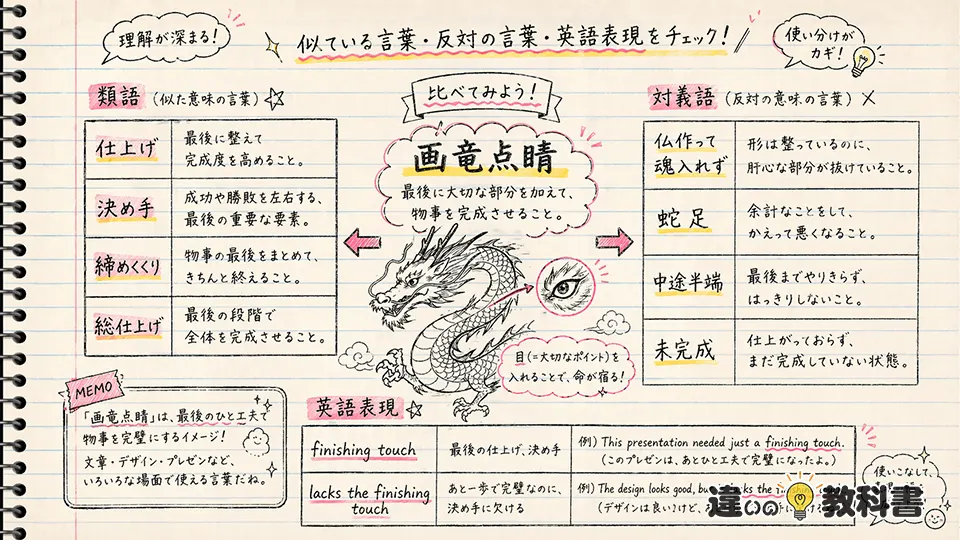 理解が深まる!
似ている言葉・反対の言葉・英語表現をチェック!
使い分けが
カギ!
類語(似た意味の言葉)
仕上げ
最後に整えて
完成度を高めること。
決め手
成功や勝敗を左右する、
最後の重要な要素。
締めくくり
物事の最後をまとめて、
きちんと終えること。
総仕上げ
最後の段階で
全体を完成させること。
比べてみよう!
画竜点睛
最後に大切な部分を加えて、
物事を完成させること。
目(=大切なポイント)を
入れることで、命が宿る!
対義語(反対の意味の言葉)
仏作って
魂入れず
形は整っているのに、
肝心な部分が抜けていること。
蛇足
余計なことをして、
かえって悪くなること。
中途半端
最後までやりきらず、
はっきりしないこと。
未完成
仕上がっておらず、
まだ完成していない状態。
MEMO
「画竜点睛」は、最後のひと工夫で
物事を完璧にするイメージ!
文章・デザイン・プレゼンなど、
いろいろな場面で使える言葉だね。
英語表現
finishing touch
最後の仕上げ、決め手
例) This presentation needed just a finishing touch.
(このプレゼンは、あとひと工夫で完璧になったよ。)
lacks the finishing
touch
あと一歩で完璧なのに、
決め手に欠ける
例) The design looks good, the
(デザインは良いけど、
使いこなして、
違いの教科書